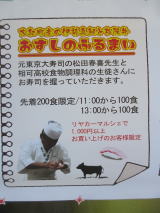 おすしのふるまい
元東京大寿司の松田春喜先生と
相可高校食物調理科の生徒さんに
お寿司を握っていただきます。
先着200食限定/11:00から100食
13:00から100食
リヤカーマルシェで
1,000円以上
お買い上げのお客様限定